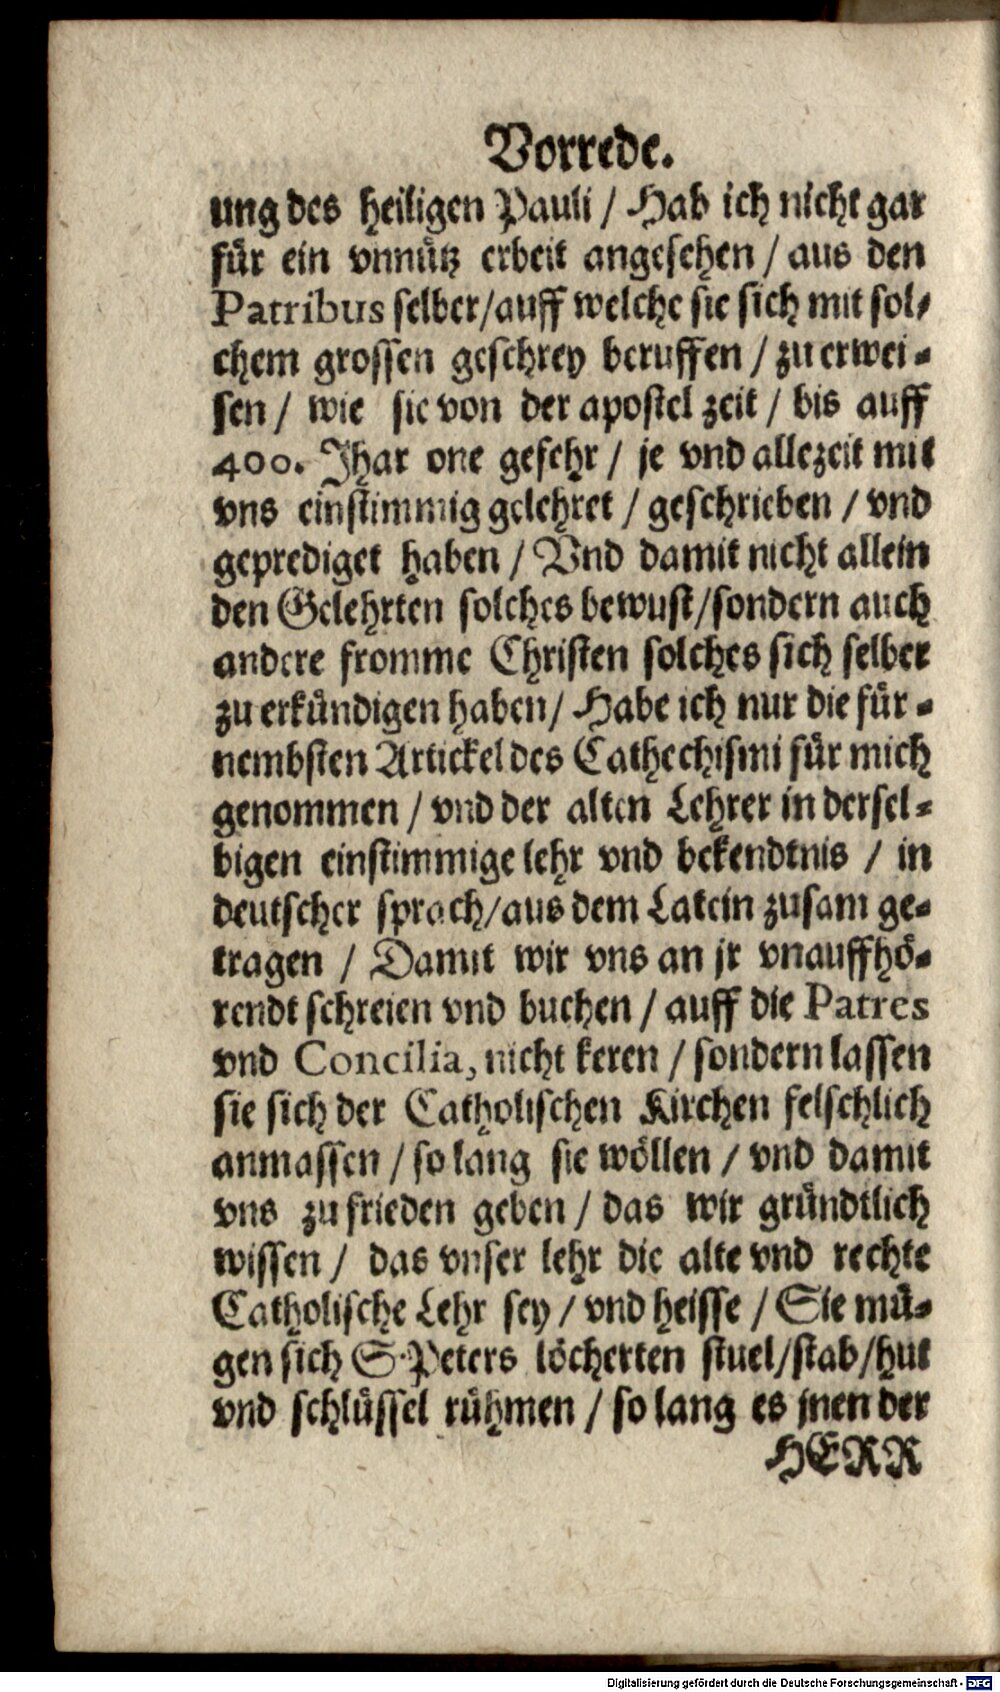 Vorrede.
ung des heiligen Pauli / Hab ich nicht gar
für ein vnnütz erbeit angesehen / aus den
Patribus selber/auff welche sie sich mit sol-
chem grossen geschrey beruffen / zu erwei-
sen / wie sie von der apostel zeit / bis auff
400. Jhar one gefehr / je vnd allezeit mit
vns einstimmig gelehret / geschrieben / vnd
geprediget haben / Vnd damit nicht allein
den Gelehrten solches bewust/sondern auch
andere fromme Christen solches sich selber
zu erkündigen haben/ Habe ich nur die für-
nembsten Artickel des Cathechismi für mich
genommen / vnd der alten Lehrer in dersel-
bigen einstimmige lehr vnd bekendtnis / in
deutscher sprach/aus dem Latein zusam ge-
tragen / Damit wir vns an jr vnauffhö-
rendt schreien vnd buchen / auff die Patres
vnd Concilia, nicht keren / sondern lassen
sie sich der Catholischen Kirchen felschlich
anmassen / so lang sie wöllen / vnd damit
vns zu frieden geben / das wir gründtlich
wissen / das vnser lehr die alte vnd rechte
Catholische Lehr sey / vnd heisse / Sie mü-
gen sich S. Peters löcherten stuel/stab/hut
vnd schlüssel rühmen / so lang es jnen der
HERR
Digitalisierung gefördert durch die Deutsche Forschungsgemeinschaft - DFG